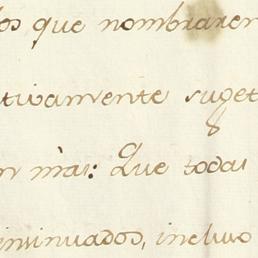 los que nombraren
tivamente suget
n màs: Que todas
insinuados, incluso